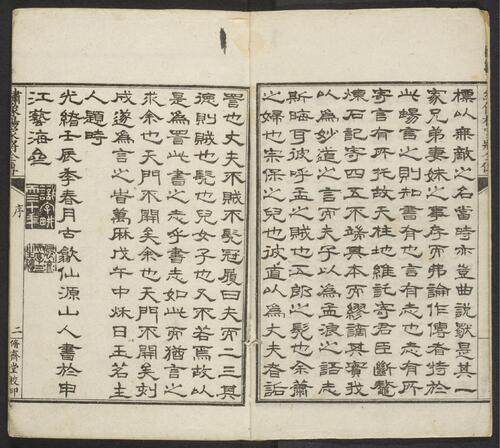 標以無敵之名當時亦豈曲說歟是其一
家兄弟妻妹之事存而弗論作傳者特於
此暢言之則知書有也言有志也志有所
寄言有所托故天柱地維託寄君臣斷鼇
煉石記四五不端其本而繆謂其實我
以為妙道之言而夫子以為孟浪之語志
斯晦耳彼呼孟也賊也五郎之髡也余蕭
之婦也宗保之兒也彼道以為丈夫者詬
詈也丈夫不賊不髡冠履曰夫而二三其
德則賊也髡也兒女子也又不若焉故以
是為置此書之志乎書志如此而猶言之
求余也天門不關矣余也天門不關矣刻
成遂為言之旹萬厤戊午中秋日玉茗主
人題時
光緒壬辰季春月古歙仙源山人書於申
江藝海
序
二